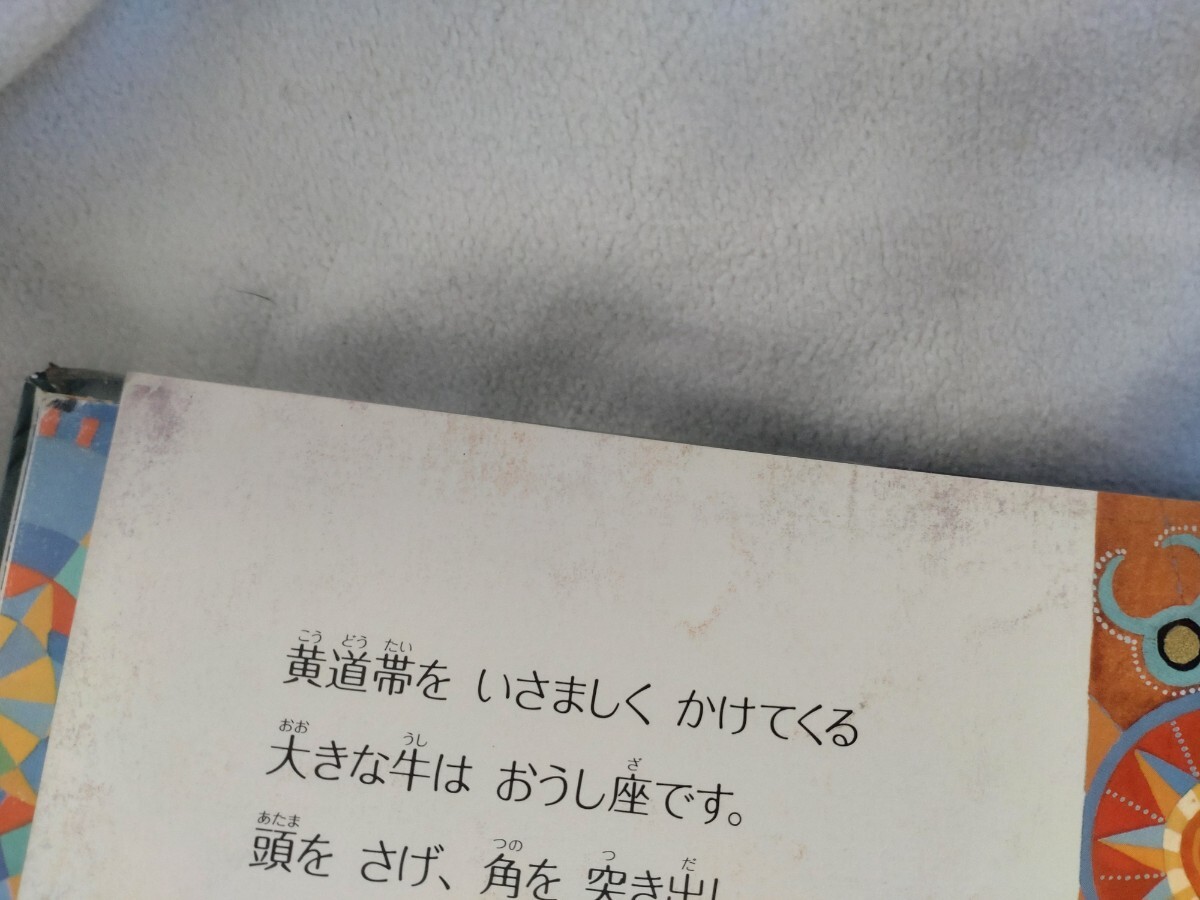 黄道帯を いさましく かけてくる
大きな牛は おうし座です。
頭を さげ、角を 突き出し